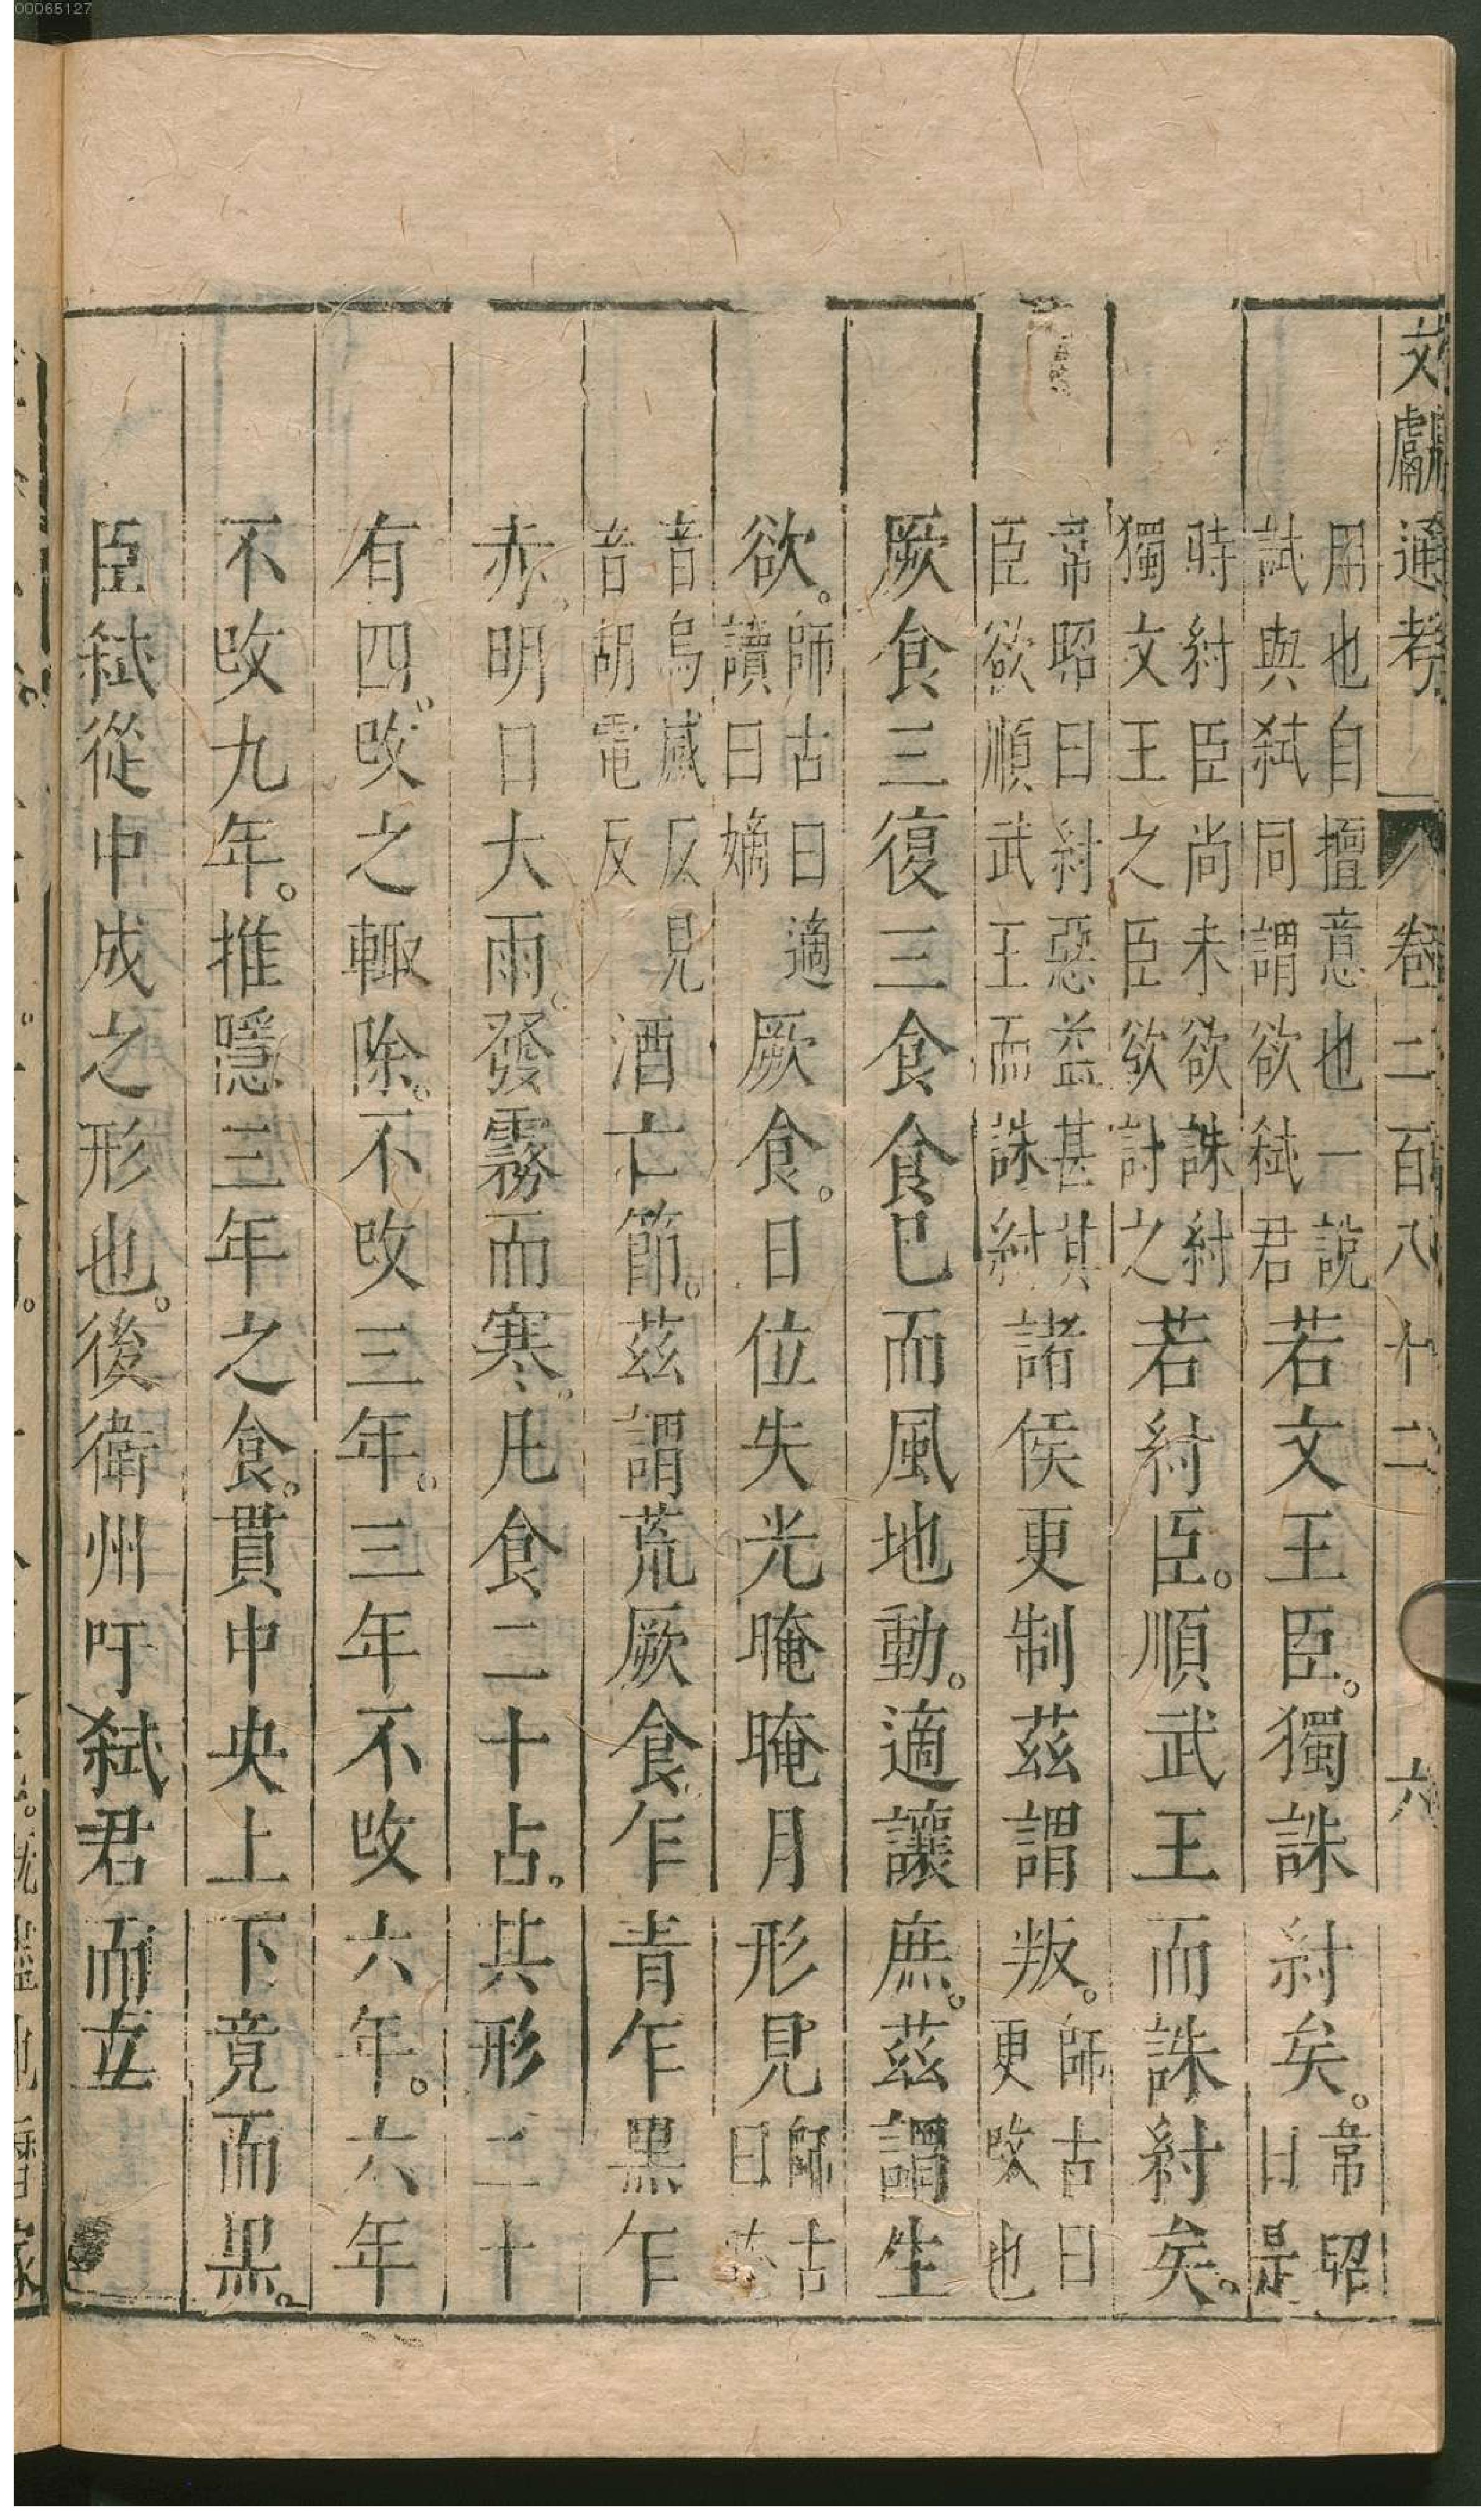 00065127
文獻通考 卷二百八十二 六
用也自擅意也一說
試與弑同謂欲弑君
若文王臣。獨誅紂矣。
韋昭
曰是
時紂臣尚未欲誅紂
獨文王之臣欲討之
若紂臣。順武王而誅紂矣。
韋昭曰紂惡益甚其
臣欲順武王而誅紂
諸侯更制茲謂叛。
師古曰
更改也
厥食三復三食食巳而風地動。適讓庶。茲謂生
欲。
師古曰適
讀曰嫡
厥食。日位失光晻晻月形見
師古
曰晻
音烏感反見
音胡電反
酒亡節。茲謂荒厥食乍青乍黑乍
赤。明日大雨。發霧而寒。凡食二十占。其形二十
有四。改之輒除。不改三年。三年不改六年。六年
不改九年。推隱三年之食。貫中央上下竟而黑。
臣弑從中成之形也。後衛州吁弑君而立